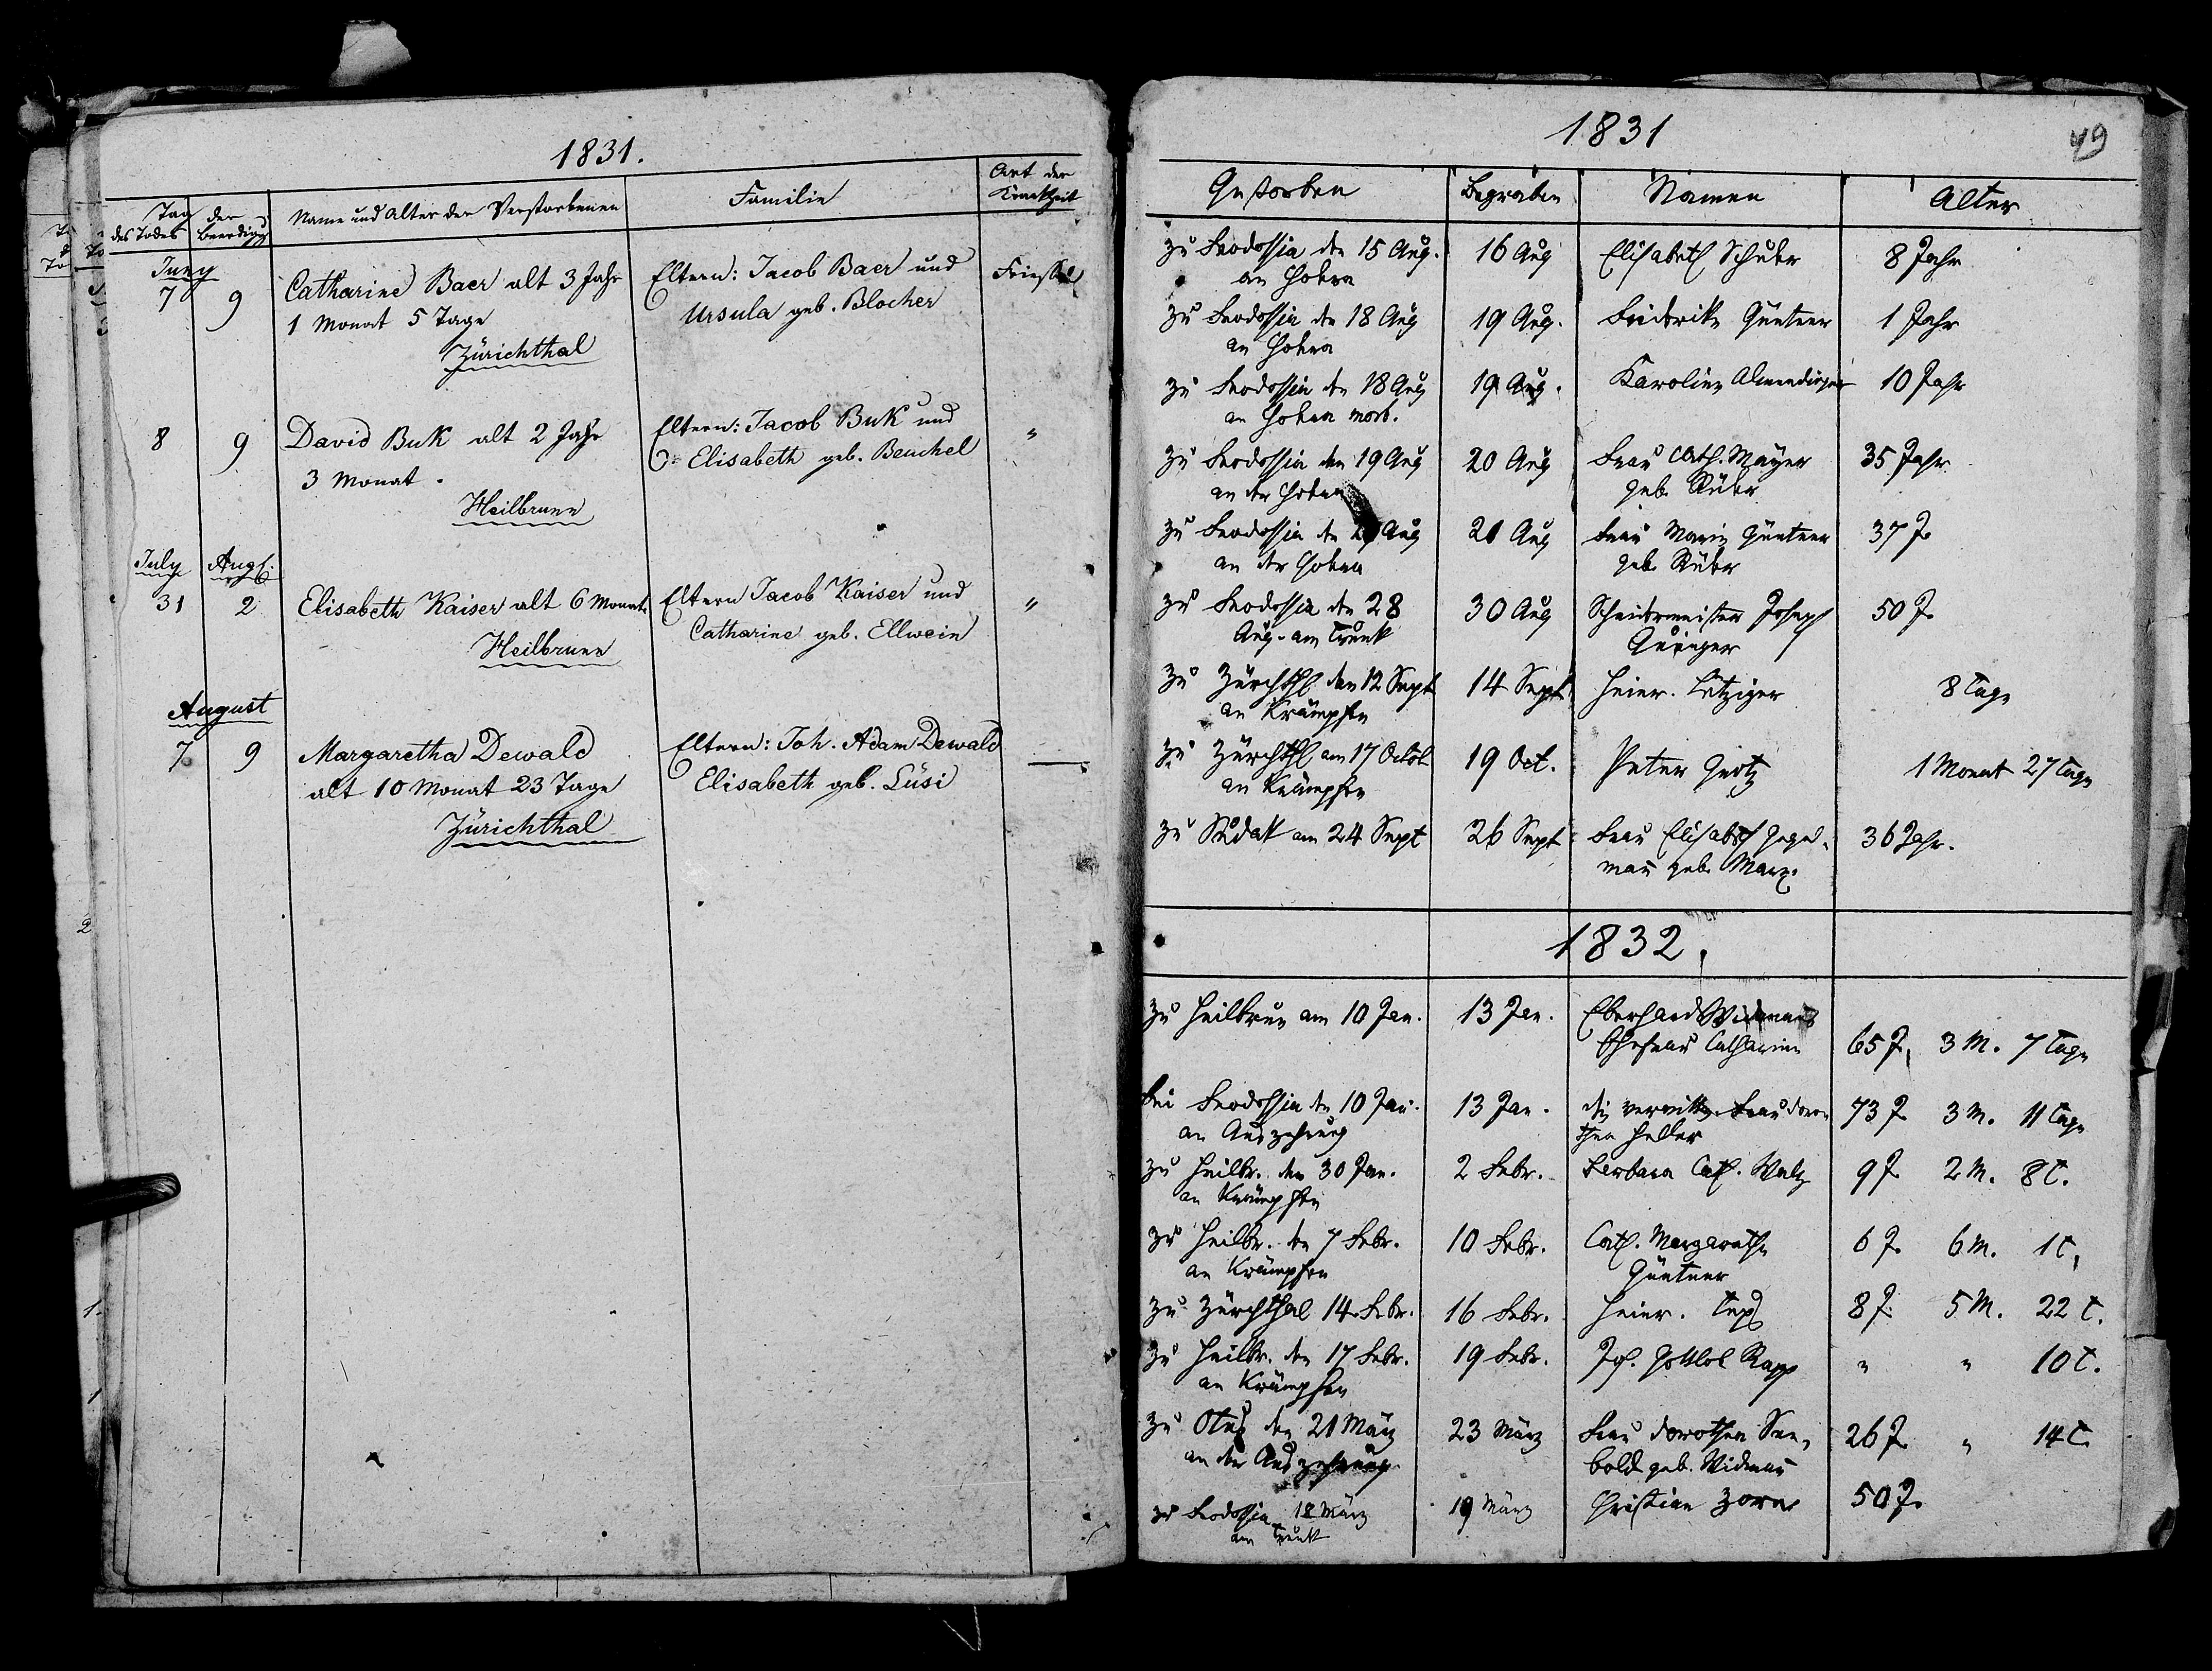 1831.
Tag der
des Todes Beerdigung
Name und Alter der Verstorbenen
Familie
Art der
Krankheit
Juny
7 9 Catharine Baer alt 3 Jahr Eltern: Jacob Baer und Friessel
1 Monat 5 Tage Ursula geb. Blocher
Zürichthal
8 9 David Buk alt 2 Jahr Eltern: Jacob Buk und "
3 Monat. Elisabeth geb. Beuchel
Heilbrunn
July Augst.
31 2 Elisabeth Kaiser alt 6 Monate Eltern Jacob Kaiser und "
Heilbrunn Catharine geb. Ellwein
August
7. 9 Margaretha Dewald Eltern: Joh. Adam Dewald —
alt 10 Monat 23 Tage Elisabeth geb. Lüsi
Zürichthal
1831
49
Gestorben Begraben Namen Alter
zu Feodossia den 15 Aug. 16 Aug Elisabeth Schuler 8 Jahr
an Colera
zu Feodossia den 18 Aug 19 Aug. Friderike Güntner 1 Jahr
an Colera
zu Feodossia den 18 Aug 19 Aug. Karoline Almendinger 10 Jahr
an Colera morb.
zu Feodossia den 19 Aug 20 Aug Frau Cath. Mayer 35 Jahr
an der Colera geb.
zu Feodossia den Aug 21 Aug Frau Marie Güntner 37 J.
an der Colera geb.
zu Feodossia den 28 30 Aug Joseph 50 J.
Aug. am Trunk
zu Zürchthl den 12 Sept 14 Sept Heinr. Litziger 8 Tage
an Krämpfen
zu Zürchthl am 17 Octob. 19 Oct. Peter Goetz 1 Monat 27 Tage
an Krämpfen
zu Sudak am 24 Sept 26 Sept Frau Elisabeth Hegel-
36 Jahr.
man geb. Marx.
1832.
zu Heilbrun am 10 Jan. 13 Jan. Eberhard Widmanns
Ehefrau Catharina 65 J. 3 M. 7 Tage
bei Feodossia den 10 Jan. 13 Jan. die verwittw. Frau Doro- 73 J. 3 M. 11 Tage
an Auszehrung thea Heller
zu Heilbr. den 30 Jan. 2 Febr. Barbara Cath. Walz 9 J. 2 M. 8 T.
an Krämpfen
zu Heilbr. den 7 Febr. 10 Febr. Cath. Margarethe 6 J. 6 M. 1 T.
an Krämpfen Güntner
zu Zürchthal 14 Febr. 16 Febr. Heinr. 8 J. 5 M. 22 T.
zu Heilbr. den 17 Febr. 19 Febr. Joh. Gottlob Rapp " " 10 T.
an Krämpfen
zu Otus den 21 März 23 März Frau Dorothea See- 26 J. " 14 T.
an der Auszehrung bold geb. Widman
zu Feodossia 18 März 19 März Christian Zorn 50 J.
am Trunk